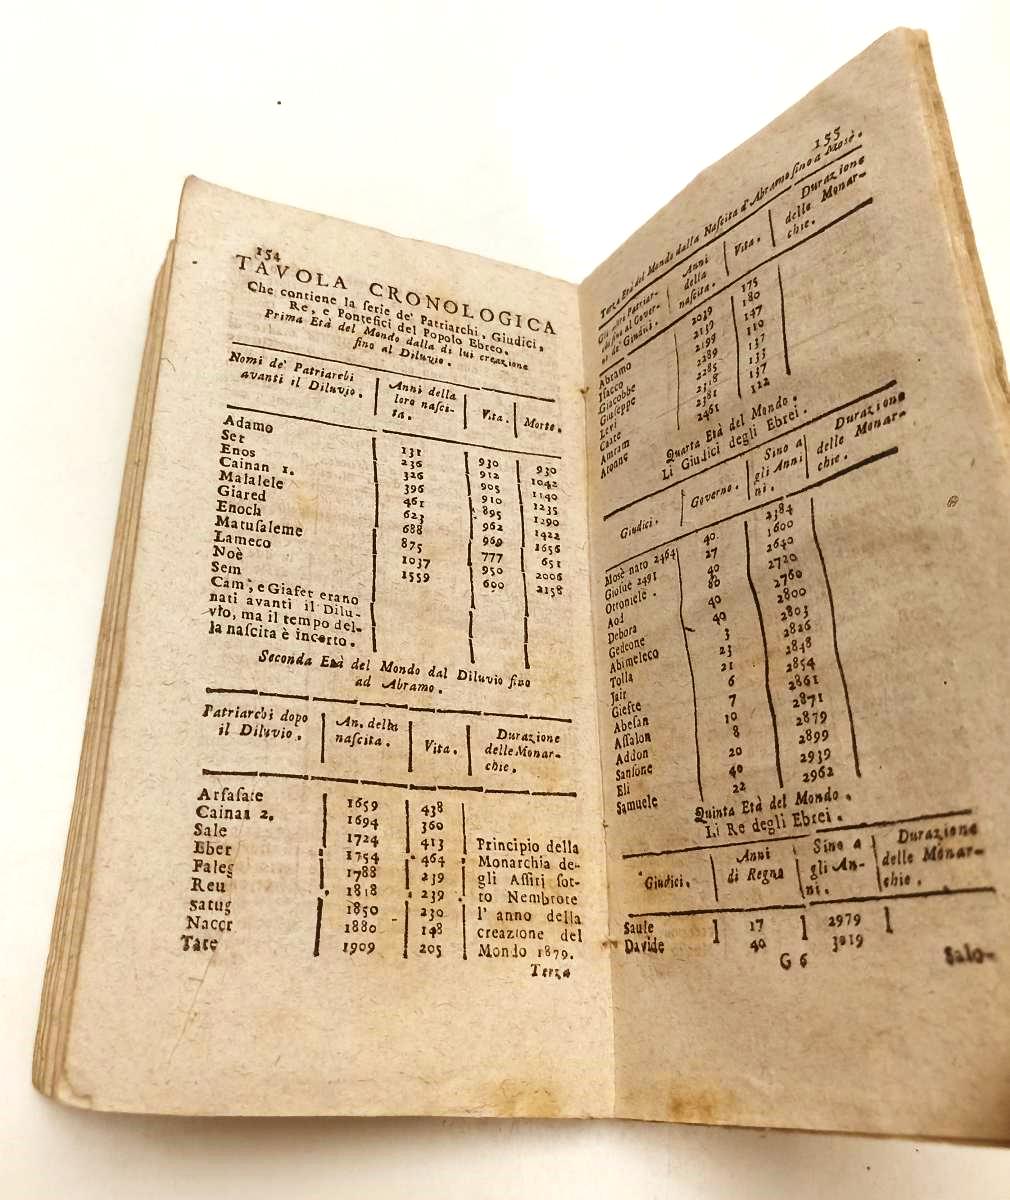 154
TAVOLA CRONOLOGICA
Che contiene la ſerie de' Patriarchi, Giudici,
Re, e Pontefici del Popolo Ebreo.
Prima Età del Mondo dalla di lui creazione
fino al Diluvio.
Nomi de' Patriarchi avanti il Diluvio. Anni della loro naſci-ta. Vita. Morte.
Adamo 930 930
Set 131 912 1042
Enos 236 905 1140
Cainan 1. 326 910 1235
Malalele 396 895 1290
Giared 461 962 1422
Enoch 623
Matuſaleme 688 969 1656
Lameco 875 777 651
Noè 1037 950 2006
Sem 1559 600 2158
Cam, e Giafet erano
nati avanti il Dilu-
vio, ma il tempo del-
la naſcita è incerto.
Seconda Età del Mondo dal Diluvio fino
ad Abramo.
Patriarchi dopo il Diluvio. An. della naſcita. Vita. Durazione delle Monar-chie.
Arfaſate 1659 438
Cainan 2. 1694 360
Sale 1724 413 Principio della
Eber 1754 464 Monarchia de-
Faleg 1788 239 gli Aſſirj ſot-
Reu 1818 239 to Nembrote
Satug 1850 230 l'anno della
Naccr 1880 148 creazione del
Tare 1909 205 Mondo 1879.
Terza
155
Terza Età del Mondo dalla Naſcita d'Abramo fino a Mosè.
Anni della naſcita. Vita. Durazione delle Monar-chie.
Abramo 2039 175
Iſacco 2139 180
Giacobbe 2199 147
Giuſeppe 2289 110
Levi 2285 137
Caate 2318 133
Amram 2381 137
Aronne 2461 122
Quarta Età del Mondo.
Li Giudici degli Ebrei.
Giudici. Governo. Sino a gli Anni Durazione delle Monar-chie.
Mosè nato 2464 40 2384
Gioſuè 2491 27 1600
Ottoniele. 40 2640
Aod 80 2720
Debora 40 2760
Gedeone 40 2800
Abimeleco 3 2803
Tolla 23 2826
Jair 21 2848
Giefte 6 2854
Abeſan 7 2861
Aſſalon 10 2871
Addon 8 2879
Sanſone 20 2899
Eli 40 2939
Samuele 22 2962
Quinta Età del Mondo.
Li Re degli Ebrei.
Giudici. Anni di Regna Sino a gli An-ni. Durazione delle Monar-chie.
Saule 17 2979
Davide 40 3019
G 6
Salo-